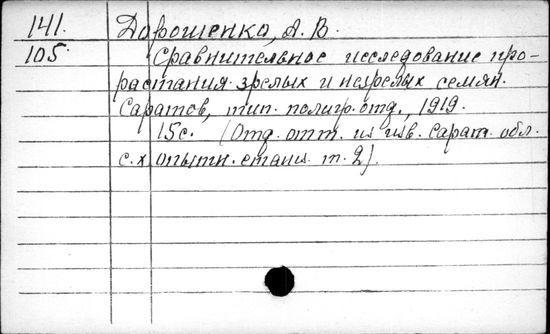 141. Дорошенко, А. В.
105. Сравнительное исследование про-
растания зрелых и незрелых семян.
Саратов, тип. полигр. отд., 1919.
15 с. (Отд. отт. из изв. Сарат. обл.
с. х. опытн. станц. т. 2).